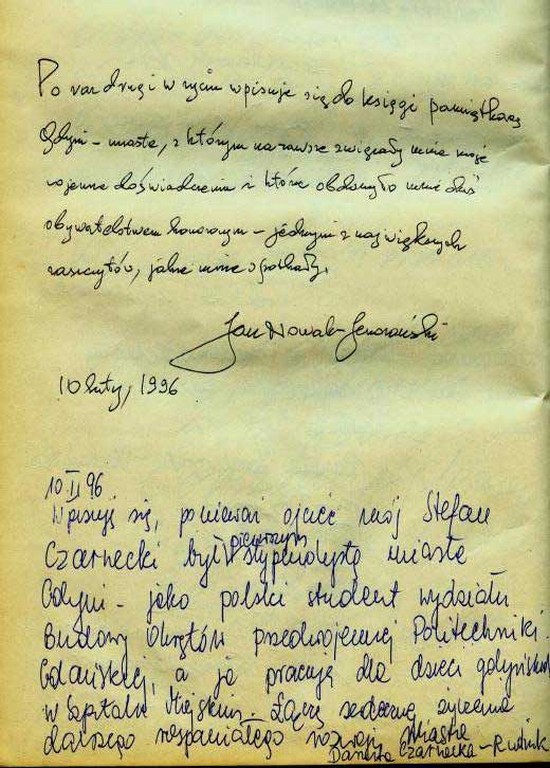 Po raz drugi w życiu wpisuję się do księgi pamiątkowej
Gdyni – miasta, z którym na zawsze związały mnie moje
wojenne doświadczenia i które obdarzyło mnie dziś
obywatelstwem honorowym – jednym z największych
zaszczytów, jakie mnie spotkały.
Jan Nowak-Jeziorański
10 luty, 1996
10 II 96
Wpisuję się, ponieważ ojciec mój Stefan
Czarnecki był pierwszym stypendystą miasta
Gdyni – jako polski student wydziału
Budowy Okrętów przedwojennej Politechniki
Gdańskiej, a ja pracuję dla dzieci gdyńskich
w Szpitalu Miejskim – Łączę serdeczne życzenia
dalszego wspaniałego rozwoju Miasta
Danuta Czarnecka-Rudnik